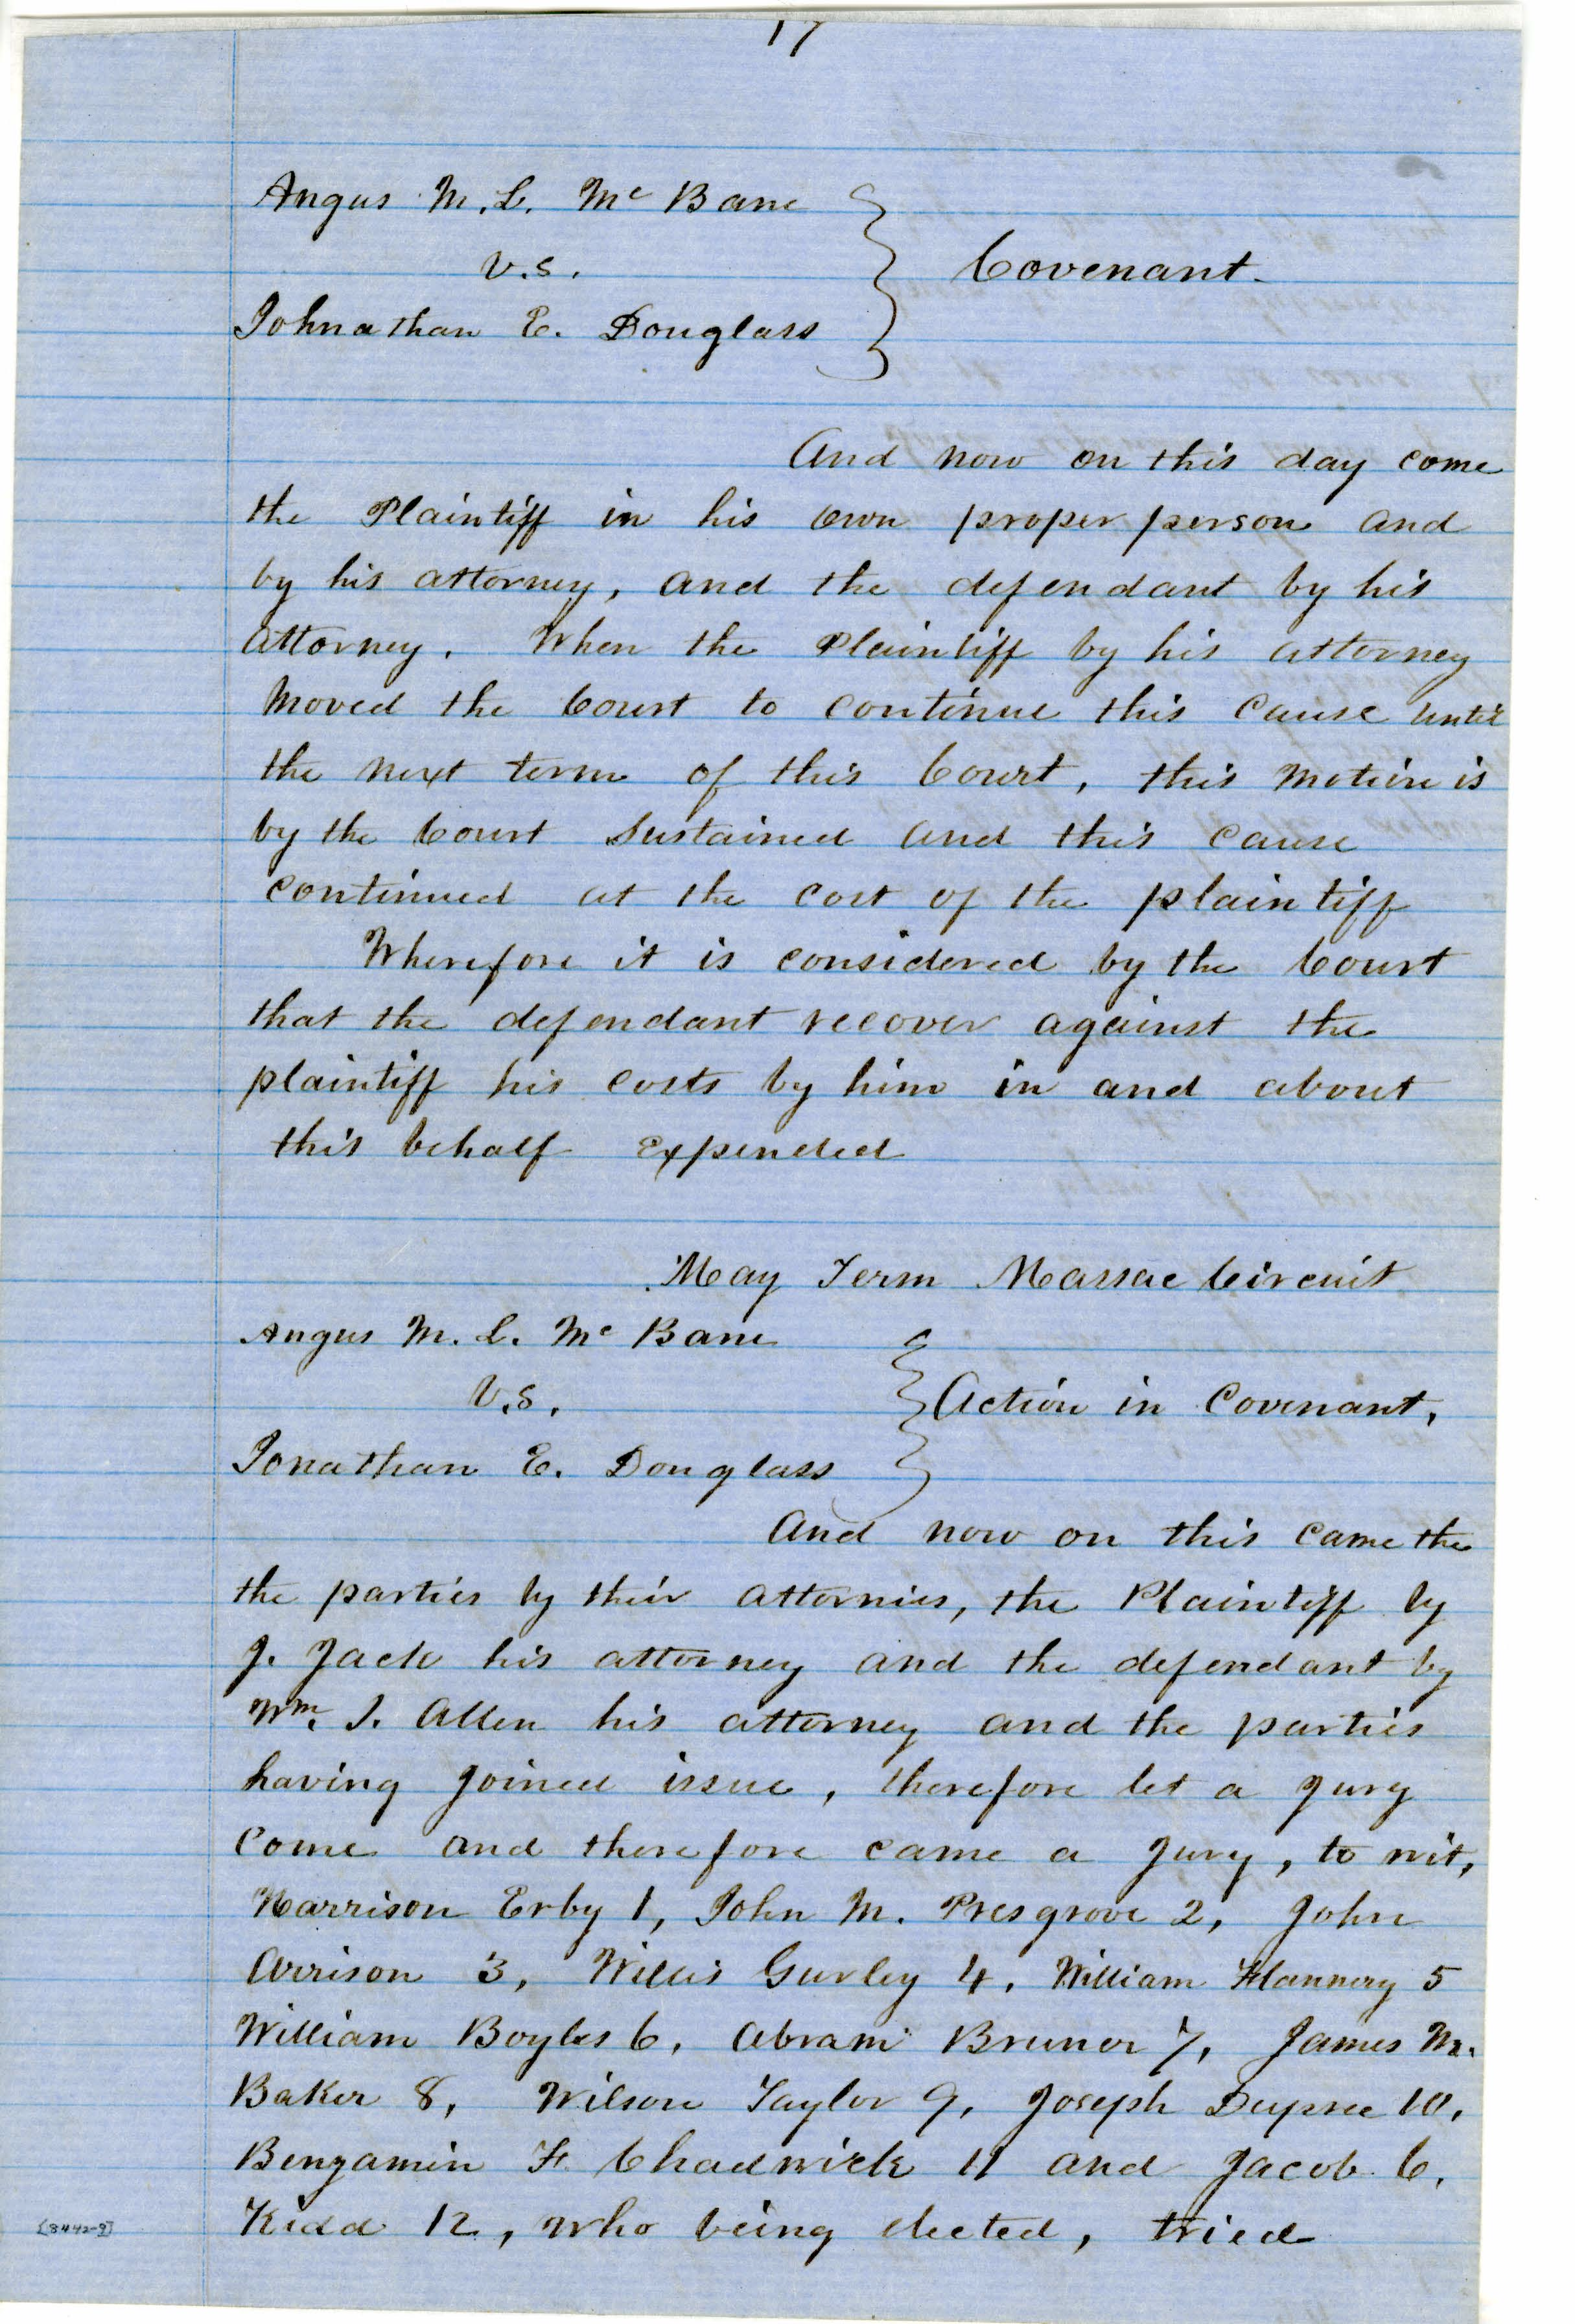 17
Angus M. L. Mc Bane
v.s.
Johnathan E. Douglass
Covenant.
And now on this day come
the Plaintiff in his own proper person and
by his attorney, and the defendant by his
attorney. When the Plaintiff by his attorney
moved the Court to continue this cause until
the next term of this Court, this motion is
by the Court sustained and this cause
continued at the cost of the plaintiff
Wherefore it is considered by the Court
that the defendant recover against the
plaintiff his costs by him in and about
this behalf expended
May Term Massac Circuit
Angus M. L. Mc Bane
v.s.
Jonathan E. Douglass
Action in Covenant,
And now on this came the
the parties by their attornies, the Plaintiff by
J. Jack his attorney and the defendant by
Wm. J. Allen his attorney and the parties
having joined issue, therefore let a jury
come and therefore came a jury, to wit,
Harrison Erby 1, John M. Presgrove 2, John
Arrison 3, Willis Gurley 4, William Flannery 5
William Boyles 6, Abram Bruner 7, James M.
Baker 8, Wilson Taylor 9, Joseph Dupree 10,
Benjamin F. Chadwick 11 and Jacob C.
Kidd 12, who being elected, tried
[8442-9]